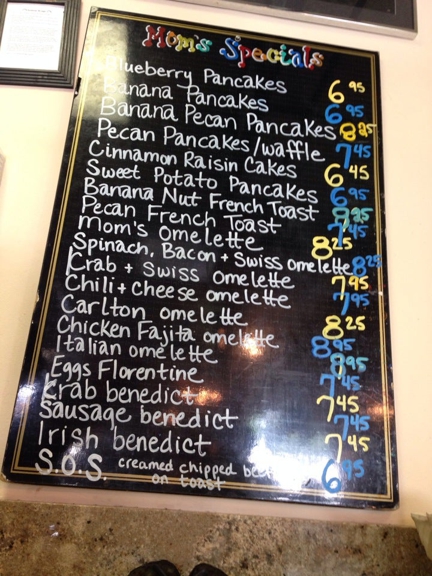 Mom's Specials
Blueberry Pancakes 6 95
Banana Pancakes 6 95
Banana Pecan Pancakes 8 25
Pecan Pancakes/waffle 7 45
Cinnamon Raisin Cakes 6 45
Sweet Potato Pancakes 6 95
Banana Nut French Toast
Pecan French Toast 7 45
Mom's Omelette 8 25
Spinach, Bacon + Swiss omelette 8 25
Crab + Swiss Omelette 7 95
Chili + Cheese omelette 7 95
Carlton omelette 8 25
Chicken Fajita omelette 8 95
Italian omelette 8 95
Eggs Florentine 7 45
Crab benedict 7 45
Sausage benedict 7 45
Irish benedict 7 45
S.O.S. creamed chipped beef 6 95
on toast